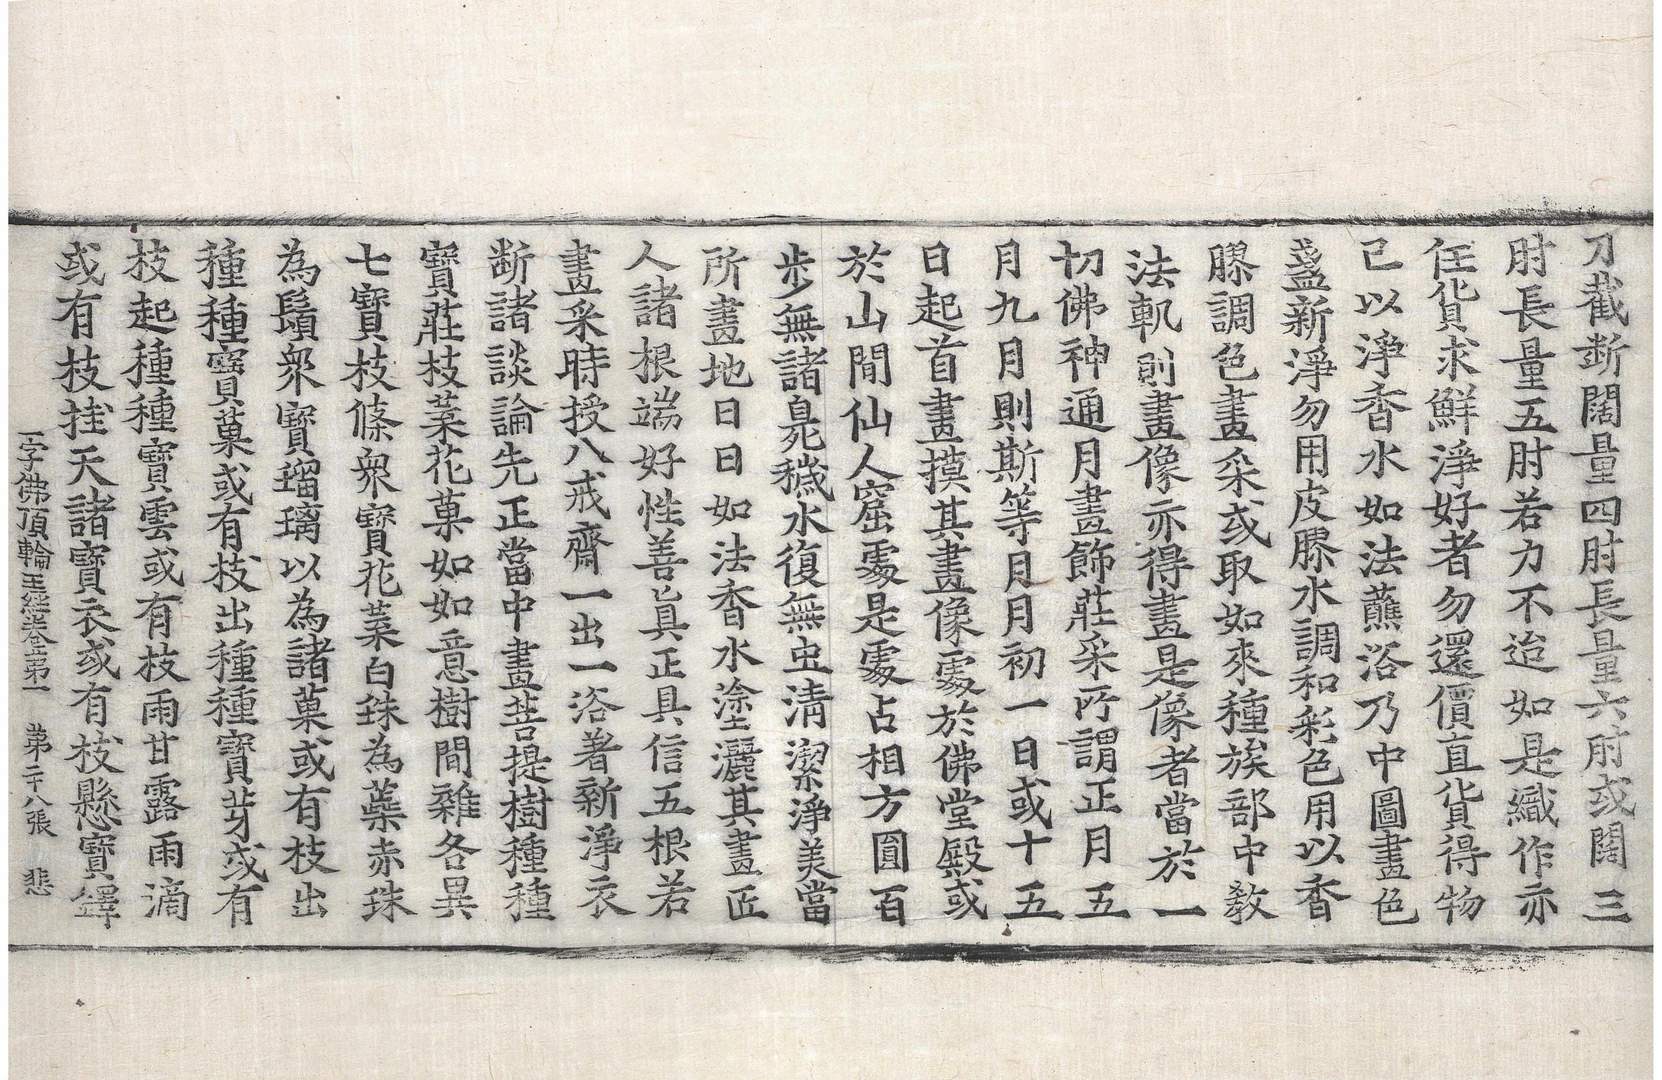 刀截斷闊量四肘長量六肘或闊三
肘長量五肘若力不迨如是織作亦
任貨求鮮淨好者勿還價直貨得物
已以淨香水如法蘸浴乃中圖畫色
盞新淨勿用皮膠水調和彩色用以香
膠調色畫采或取如來種族部中教
法軌則畫像亦得畫是像者當於一
切佛神通月畫飾莊采所謂正月五
月九月則斯等月月初一日或十五
日起首畫摸其畫像處於佛堂殿或
於山間仙人窟處是處占相方圓百
步無諸臰穢水復無虫清潔淨美當
所畫地日日如法香水塗灑其畫匠
人諸根端好性善具正具信五根若
畫采時授八戒齋一出一浴著新淨衣
斷諸談論先正當中畫菩提樹種種
寶莊枝葉花菓如如意樹間雜各異
七寶枝條衆寶花葉白珠為蘂赤珠
為鬚衆寶瑠璃以為諸菓或有枝出
種種寶菓或有枝出種種寶芽或有
枝起種種寶雲或有枝雨甘露雨滴
或有枝挂天諸寶衣或有枝懸寶鐸
一字佛頂輪王經卷第一　第二十八張　悲